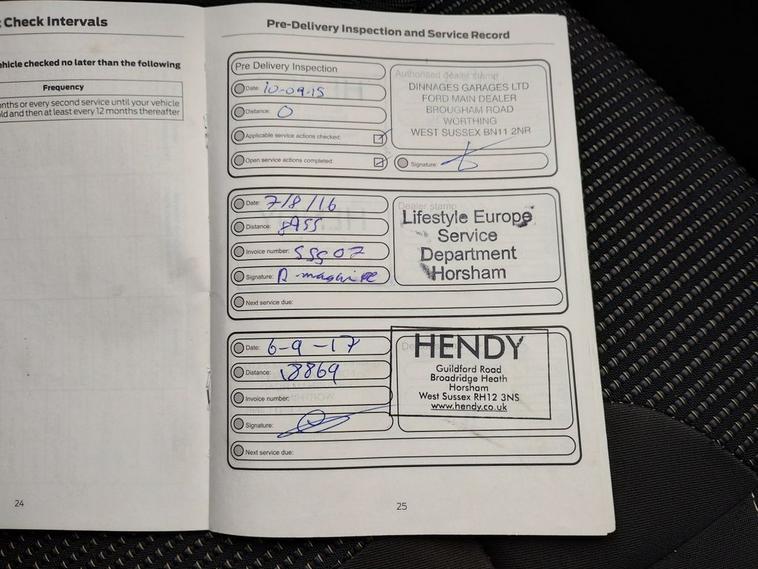 Check Intervals
ehicle checked no later than the following
Frequency
onths or every second service until your vehicle
old and then at least every 12 months thereafter
24
Pre-Delivery Inspection and Service Record
Pre Delivery Inspection
Date: 10-09-15
Distance: 0
Applicable service actions checked:
Open service actions completed:
Authorised dealer stamp
DINNAGES GARAGES LTD
FORD MAIN DEALER
BROUGHAM ROAD
WORTHING
WEST SUSSEX BN11 2NR
Signature:
Date: 7/8/16
Distance:
Invoice number: 55907
Signature:
Next service due:
Dealer stamp
Lifestyle Europe
Service
Department
Horsham
Date: 6-9-17
Distance: 18869
Invoice number:
Signature:
Next service due:
HENDY
Guildford Road
Broadridge Heath
Horsham
West Sussex RH12 3NS
www.hendy.co.uk
25